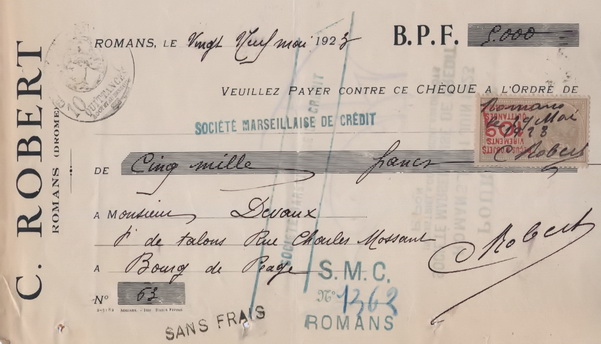 C. ROBERT
ROMANS (DROME)
ROMANS, LE Vingt Neuf mai 1923 B.P.F. 5.000
VEUILLEZ PAYER CONTRE CE CHÈQUE A L'ORDRE DE
SOCIÉTÉ MARSEILLAISE DE CRÉDIT
Romans
le 29 Mai
1923
C Robert
DE Cinq mille francs
A Monsieur Devaux
Ft de talons Rue Charles Mossant
A Bourg de Péage
C Robert
No 63
SANS FRAIS
S.M.C.
No 1363
ROMANS